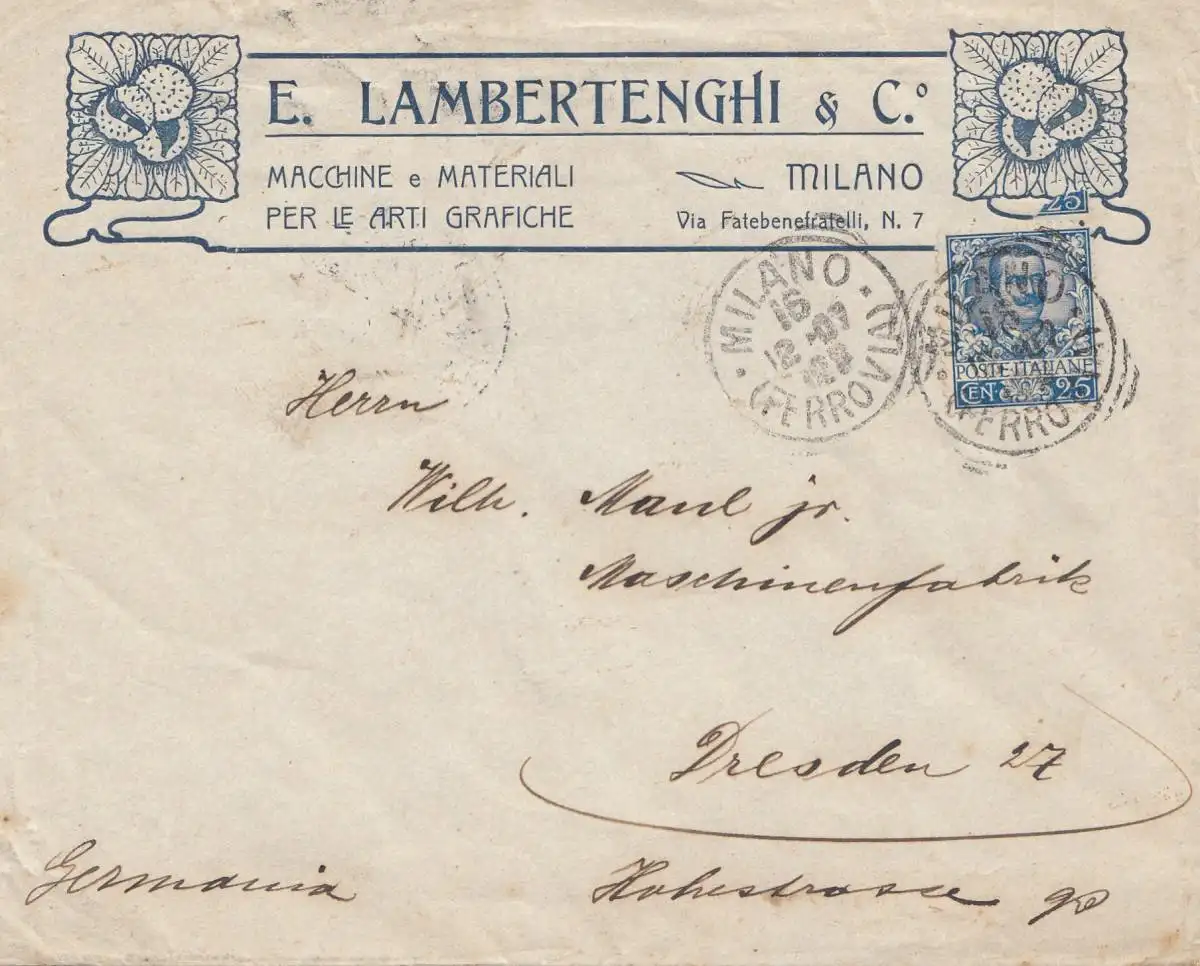 E. LAMBERTENGHI & C.º
MACCHINE e MATERIALI
PER LE ARTI GRAFICHE
MILANO
Via Fatebenefratelli, N. 7
25
MILANO
16
12 - 07
(FERROVIA)
MILANO
(FERRO
POSTE ITALIANE
CEN. 25
Herrn
Wilh. Maul jr.
Maschinenfabrik
Dresden 27
Germania
Hohestrasse